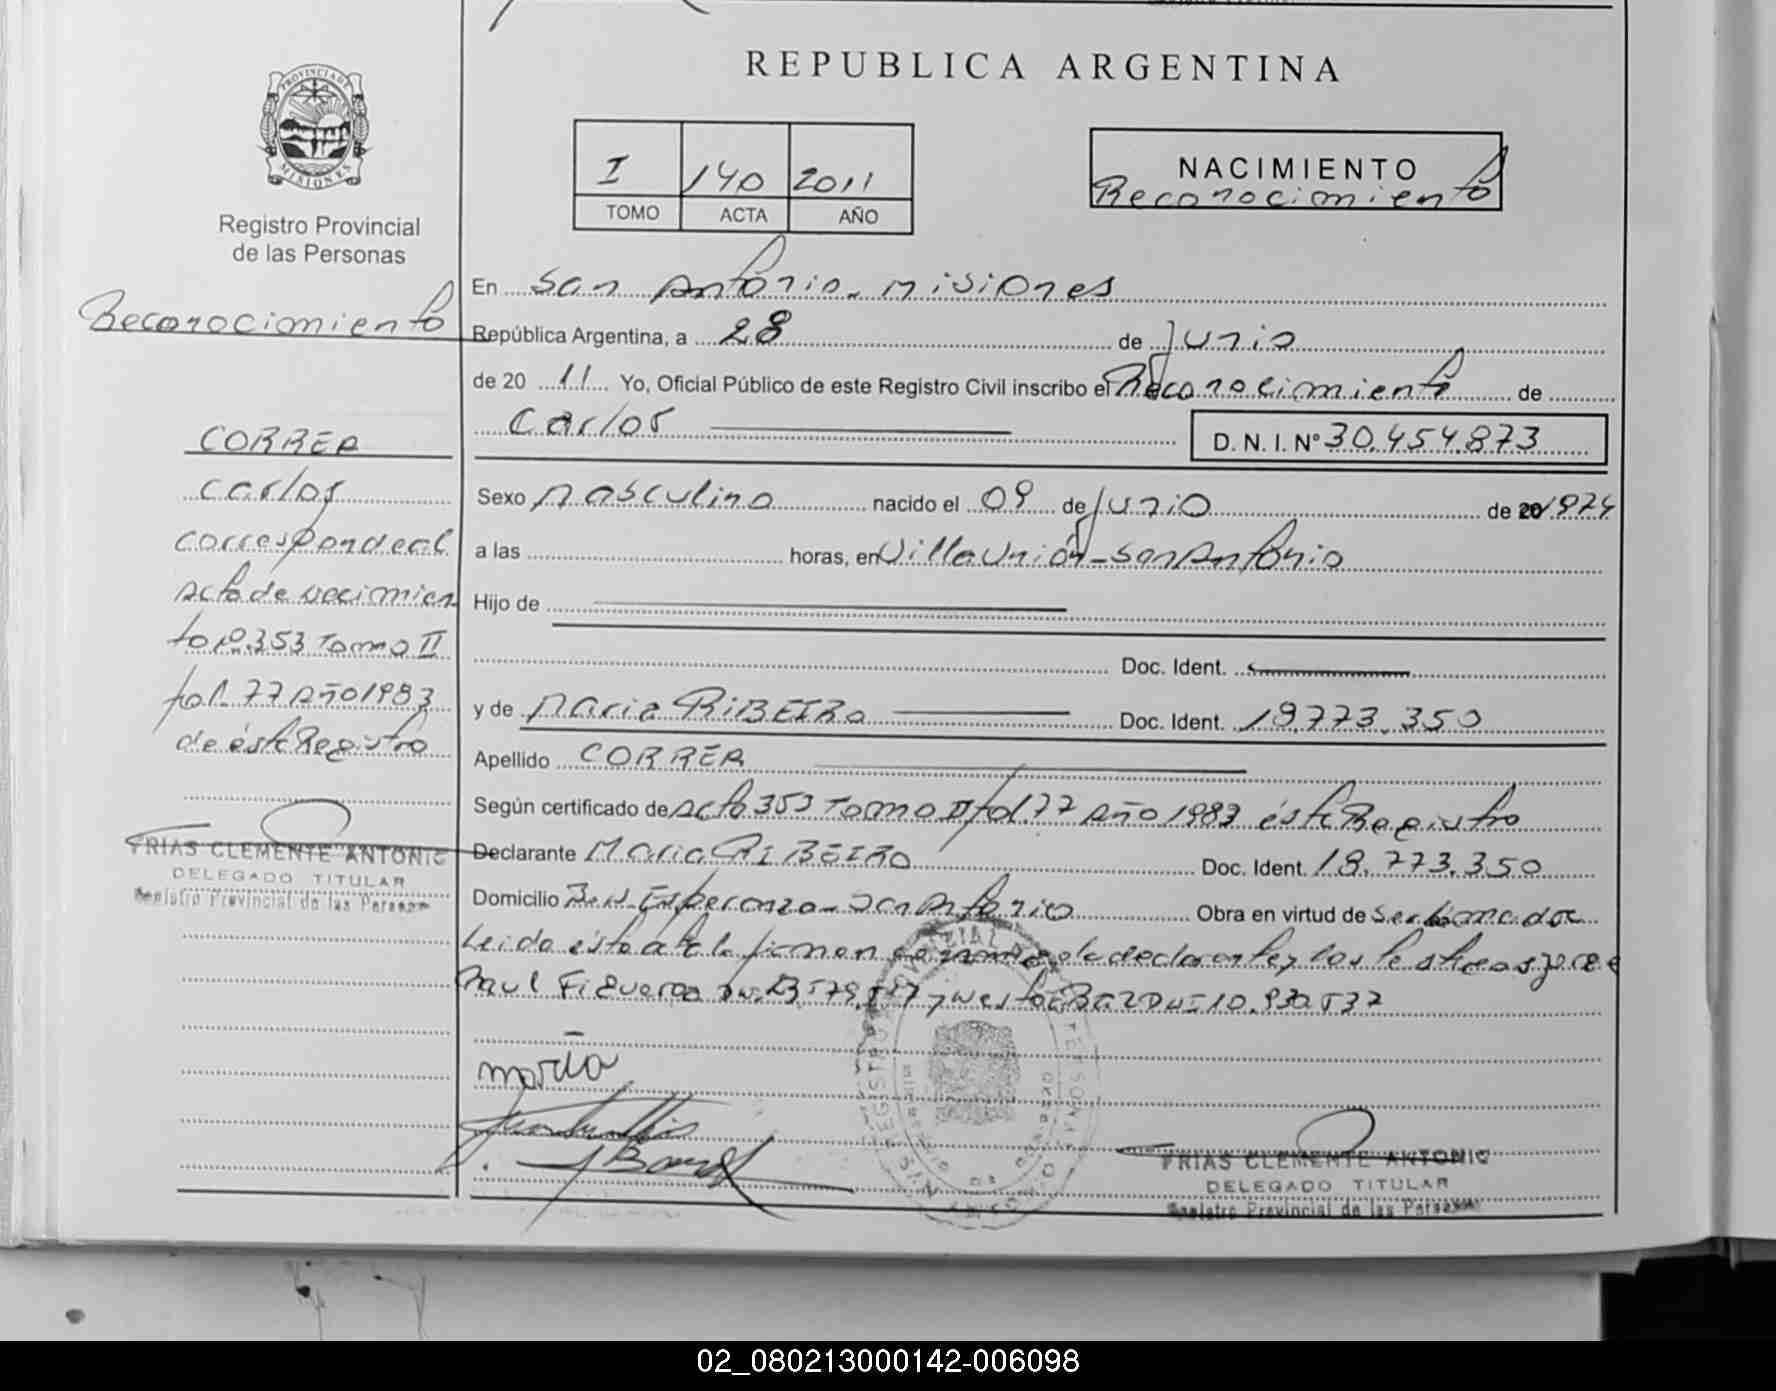 REPUBLICA ARGENTINA
PROVINCIA DE
MISIONES
Registro Provincial
de las Personas
I 140 2011
TOMO ACTA AÑO
NACIMIENTO
Reconocimiento
Reconocimiento
CORREA
Carlos
corresponde al
acta de nacimien
to nº 353 Tomo II
fol. 77 Año 1983
de éste Registro
FRIAS CLEMENTE ANTONIO
DELEGADO TITULAR
Registro Provincial de las Personas
En San Antonio - Misiones
República Argentina, a 28 de Junio
de 20 11 Yo, Oficial Público de este Registro Civil inscribo el Reconocimiento de
Carlos D. N. I. Nº 30.454.873
Sexo Masculino nacido el 09 de Junio de 20 1974
a las horas, en Villa Unión - San Antonio
Hijo de
Doc. Ident.
y de Maria RIBEIRO Doc. Ident. 18.773.350
Apellido CORREA
Según certificado de Acta 353 Tomo II fol. 77 Año 1983 éste Registro
Declarante Maria RIBEIRO Doc. Ident. 18.773.350
Domicilio Bª Esperanza - San Antonio Obra en virtud de ser llamado
Leida ésta acta la firman la declarante y los testigos Jorge
Raul Figueroa y Nestor BAEZ DNI 10.930.537
maria
FRIAS CLEMENTE ANTONIO
DELEGADO TITULAR
Registro Provincial de las Personas
02_080213000142-006098